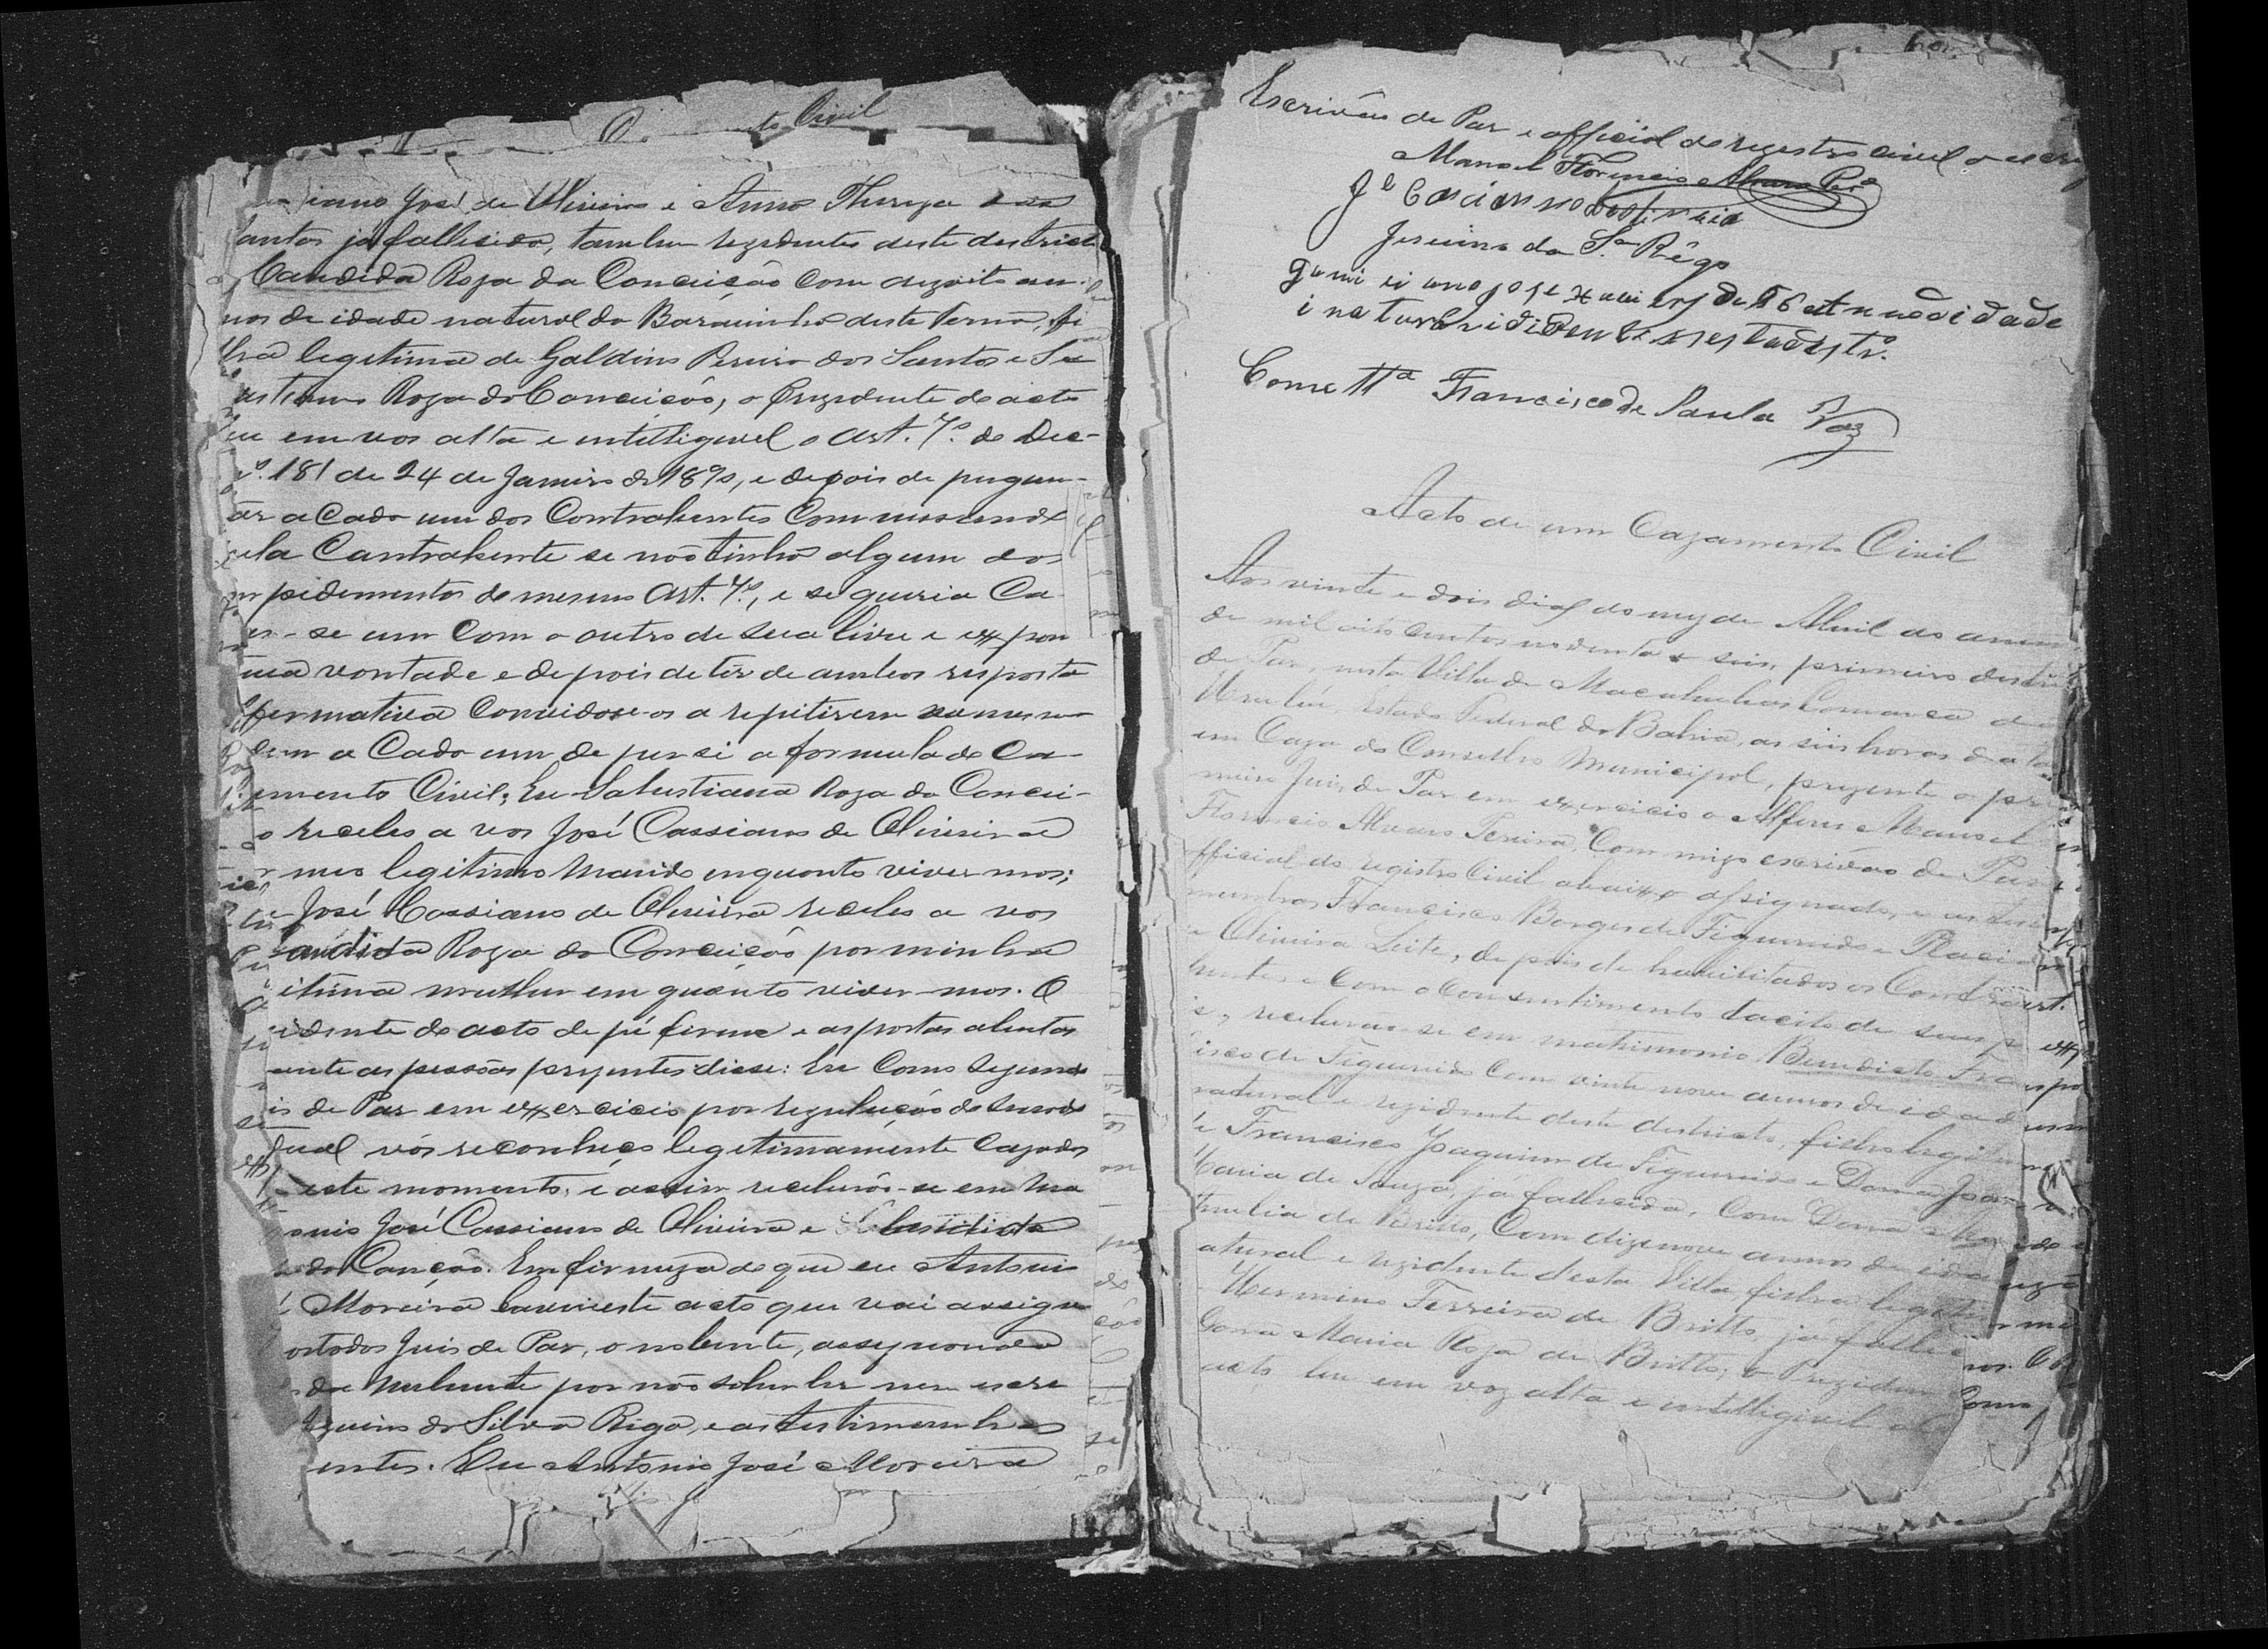 Civil
José de Oliveira e Anna Thereza dos
antos ja fallecido, tambem rezidentes deste destricto
Candida Roza da Conceição com dezoito an-
nos de idade natural do Barauinho deste termo, fi
lha legitima de Galdino Pereira dos Santos e Se
astiana Roza da Conceição, o prezidente do acto
leu em vos alta e intelligivel o Art. 7º. do Dec-
nº. 181 de 24 de Janeiro de 1890, e depois de pergun-
ar a Cado um dos Contrahentes
ella Contrahente se não tinhão algum dos
mpidementos do mesmo Art. 7º, e se queria Ca
ar-se um Com o outro de sua livre e expon
nea vontade e depois de ter de ambos resposta
ffermativa Convidou-os a repitirem
a Cado um de per si a formula do Ca-
amento Civil; Eu Salustiana Roza da Concei-
o recebo a vos José Cassiano de Oliveira
meo legitimo marido enquonto viver mos;
José Cassiano de Oliveira recebo a vos
andida Roza da Conceição por minha
itima mulher em quanto viver-mos. O
zidente do acto de pé firme e as portas abertas
ante as pessoas prezentes disse: Eu Como Segundo
is de Paz em exsercicio por
qual vós reconheço legitimamente Cazados
este momento, e assim receberão-se em Ma
onio José Cassiano de Oliveira e
da Conção. Em firmeza do que eu Antonio
é Moreira lavrei este acto que vai assign
or todos Juis de Paz, o nubente, assignando a
do nubente por não saber ler nem escre
Jezuino da Silva Rego, e as testimunhas
entes. Eu Antonio José Moreira
Escrivão de Paz e official do registro civil o escre
Manoel Florencio Alvares Perª
Jé Caciano doolivieira
Jesuino da Sª Rêgo
jose Xavier de 56 annos di idade
i natural
Come ttª Francisco de Paula Vaz
Acto de um Cazamento Civil
Aos vinte e dois dias do mez de Abril do anno
de mil oito centos noventa e seis, primeiro destri
de Paz, nesta Villa de Macahubas Comarca de
Urubú, Estado Federal da Bahia, as seis horas da ta
em Caza do Conselho Municipal, prezente o pri
meiro Juis de Paz em exercicio o Alferes Manoel
Florencio Alvares Pereira, Com migo escrivão de Paz e
fficial do registro Civil abaixo assignado, e as teste
munhas Francisco Borges de Figueiredo e Placido
e Oliveira Leite, depois de habilitados os Contra
hentes e Com o Consentimento tacito de seus p
s, receberão-se em matrimonio Benedicto Fran
isco de Figueiredo Com vinte nove annos de idade
natural e rezidente deste destricto, filho legitimo
e Francisco Joaquim de Figueiredo e Dona Joan
Maria de Souza, já fallecida, Com Dona
melia de Britto, Com dizenove annos de ida
atural e rezidente desta Villa filha legitim
Hermino Ferreira de Britto, já falleci
Dona Maria Roza de Britto; o Prezidente
acto leu em voz alta e intelligivil